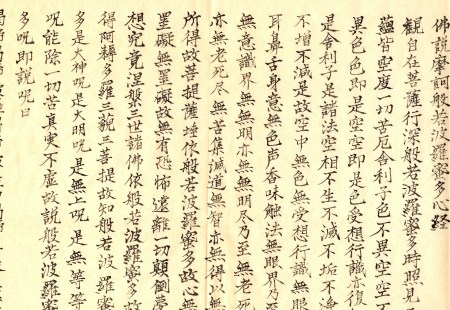 佛説摩訶般若波羅蜜多心経
観自在菩薩行深般若波羅蜜多時照見
蘊皆空度一切苦厄舎利子色不異空空不
異色色即是空空即是色受想行識亦復
是舎利子是諸法空相不生不滅不垢不浄
不増不減是故空中無色無受想行識無眼
耳鼻舌身意無色声香味触法無眼界乃
無意識界無無明亦無無明尽乃至無老死
亦無老死尽無苦集滅道無智亦無得以無
所得故菩提薩埵依般若波羅蜜多故心無
罣礙無罣礙故無有恐怖遠離一切顛倒夢
想究竟涅槃三世諸佛依般若波羅蜜多
得阿耨多羅三藐三菩提故知般若波羅蜜
多是大神呪是大明呪是無上呪是無等等
呪能除一切苦真実不虚故説般若波羅蜜
多呪即説呪曰